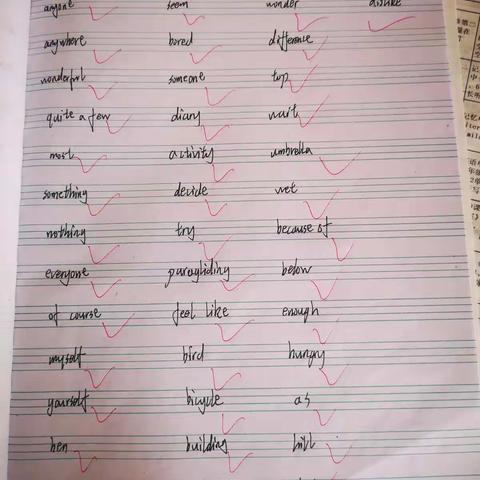 anyone seem wonder dislike
anywhere bored difference
wonderful someone top
quite a few diary wait
most activity umbrella
something decide wet
nothing try because of
everyone paragliding below
of course feel like enough
myself bird hungry
yourself bicycle as
hen building hill